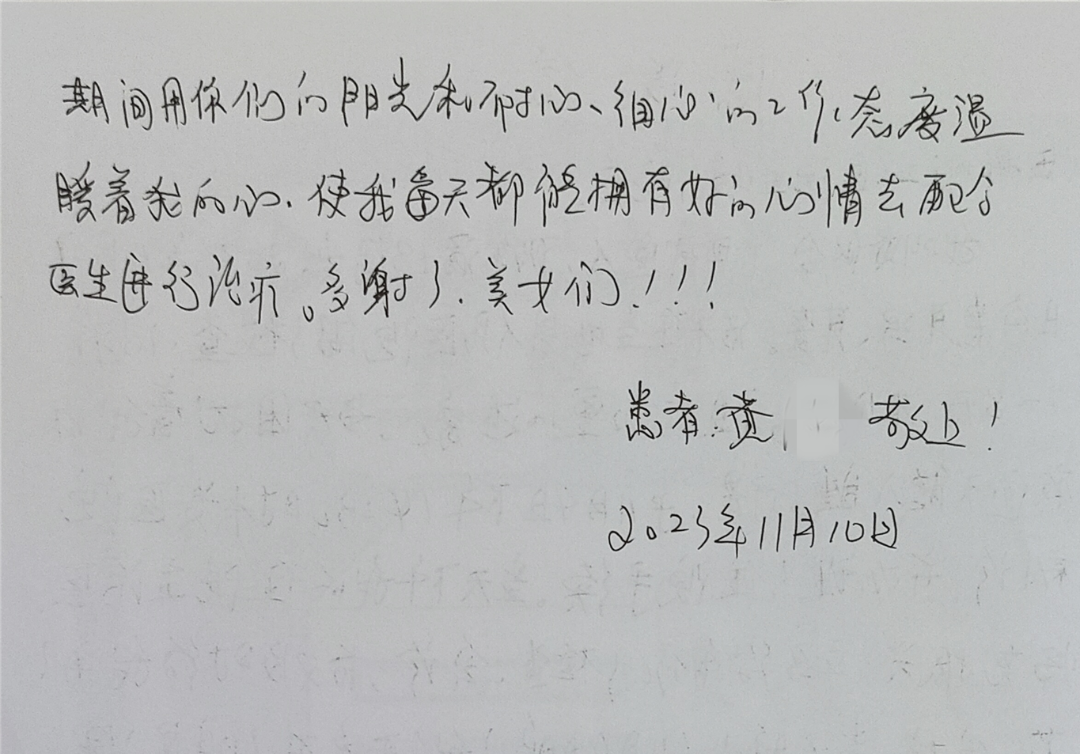 期间用你们的阳光和耐心、细心的工作态度温
暖着我的心、使我每天都能拥有好的心情去配合
医生进行治疗。多谢了、美女们！！！
患者：黄 敬上！
2023年11月10日